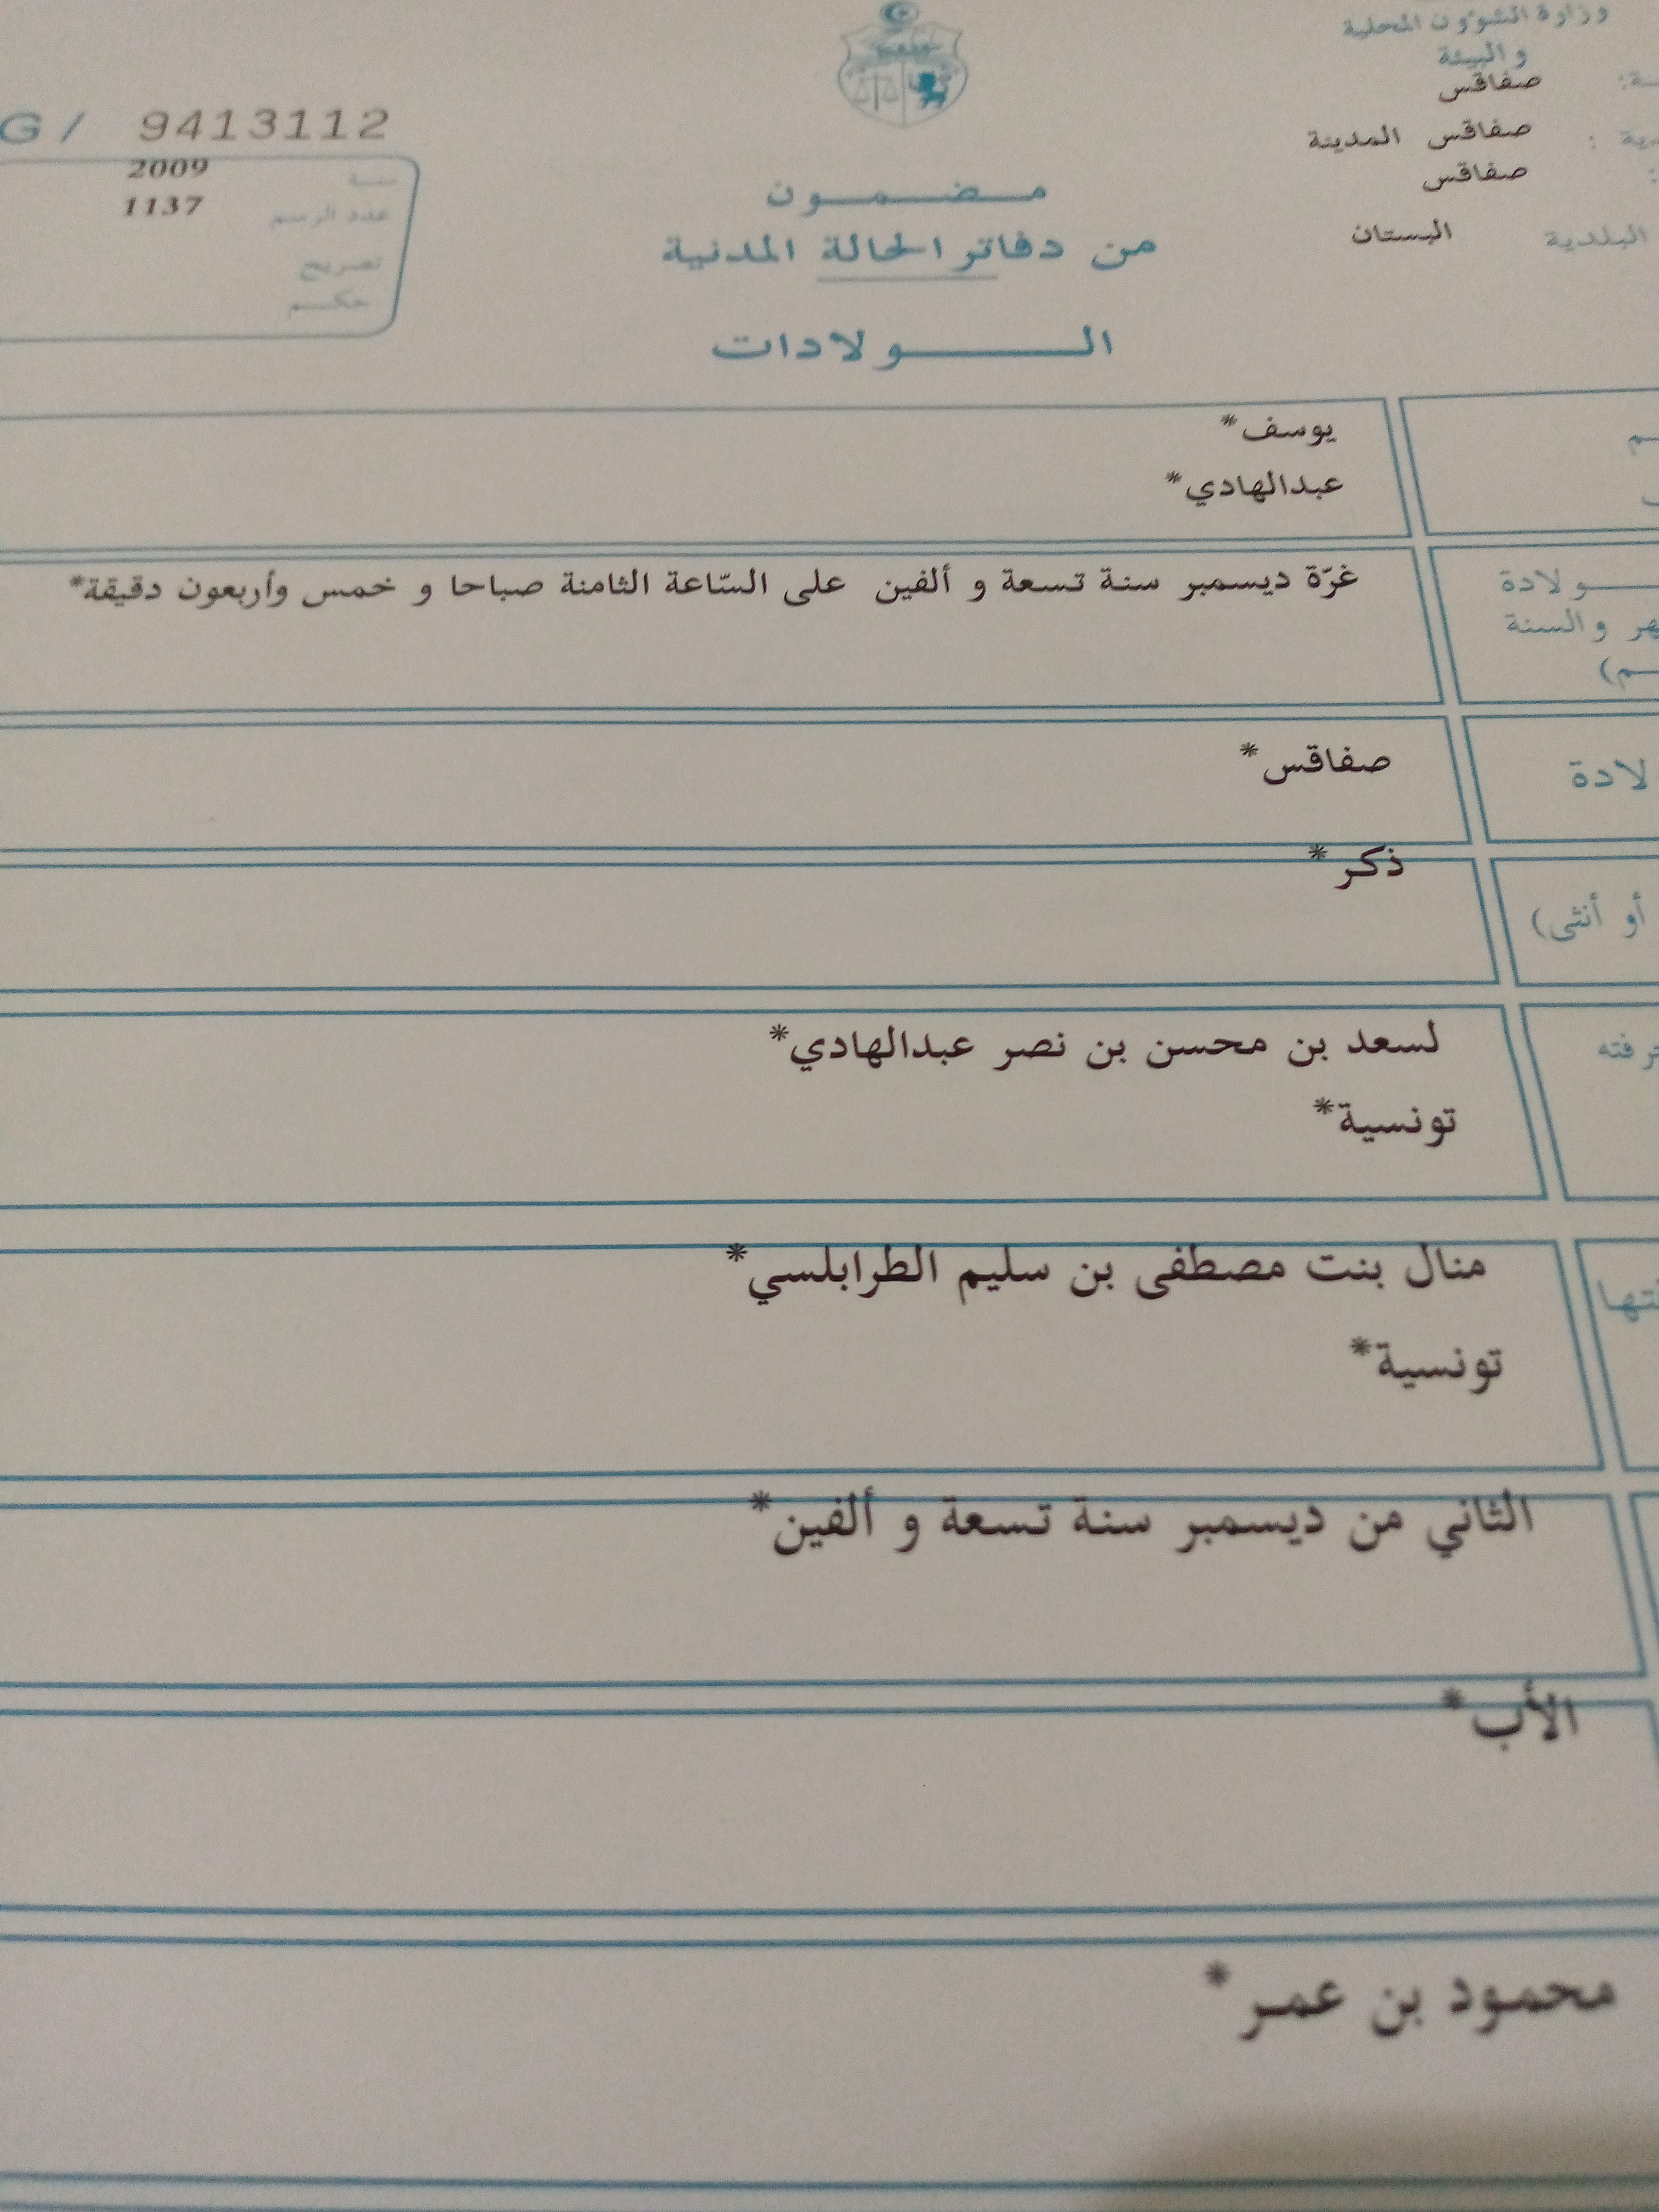 وزارة الشؤون المحلية
والبيئة
صفاقس
صفاقس المدينة
صفاقس
البلدية البستان
G/ 9413112
سنة 2009
عدد الرسم 1137
تصريح
حكم
مضمون
من دفاتر الحالة المدنية
الولادات
يوسف*
عبدالهادي*
ولادة غرّة ديسمبر سنة تسعة و ألفين على السّاعة الثامنة صباحا و خمس وأربعون دقيقة*
والسنة
صفاقس*
ذكر*
أو أنثى)
لسعد بن محسن بن نصر عبدالهادي*
تونسية*
منال بنت مصطفى بن سليم الطرابلسي*
تونسية*
الثاني من ديسمبر سنة تسعة و ألفين*
الأب*
محمود بن عمر*